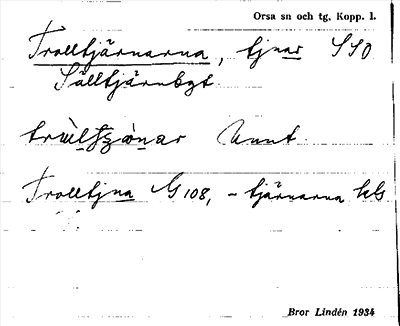 Orsa sn och tg. Kopp. l.
Trolltjärnarna, tjnar SSO
Sälltjärnbgt
Unnt
Trolltjna G 108, – tjärnarna kG
Bror Lindén 1934